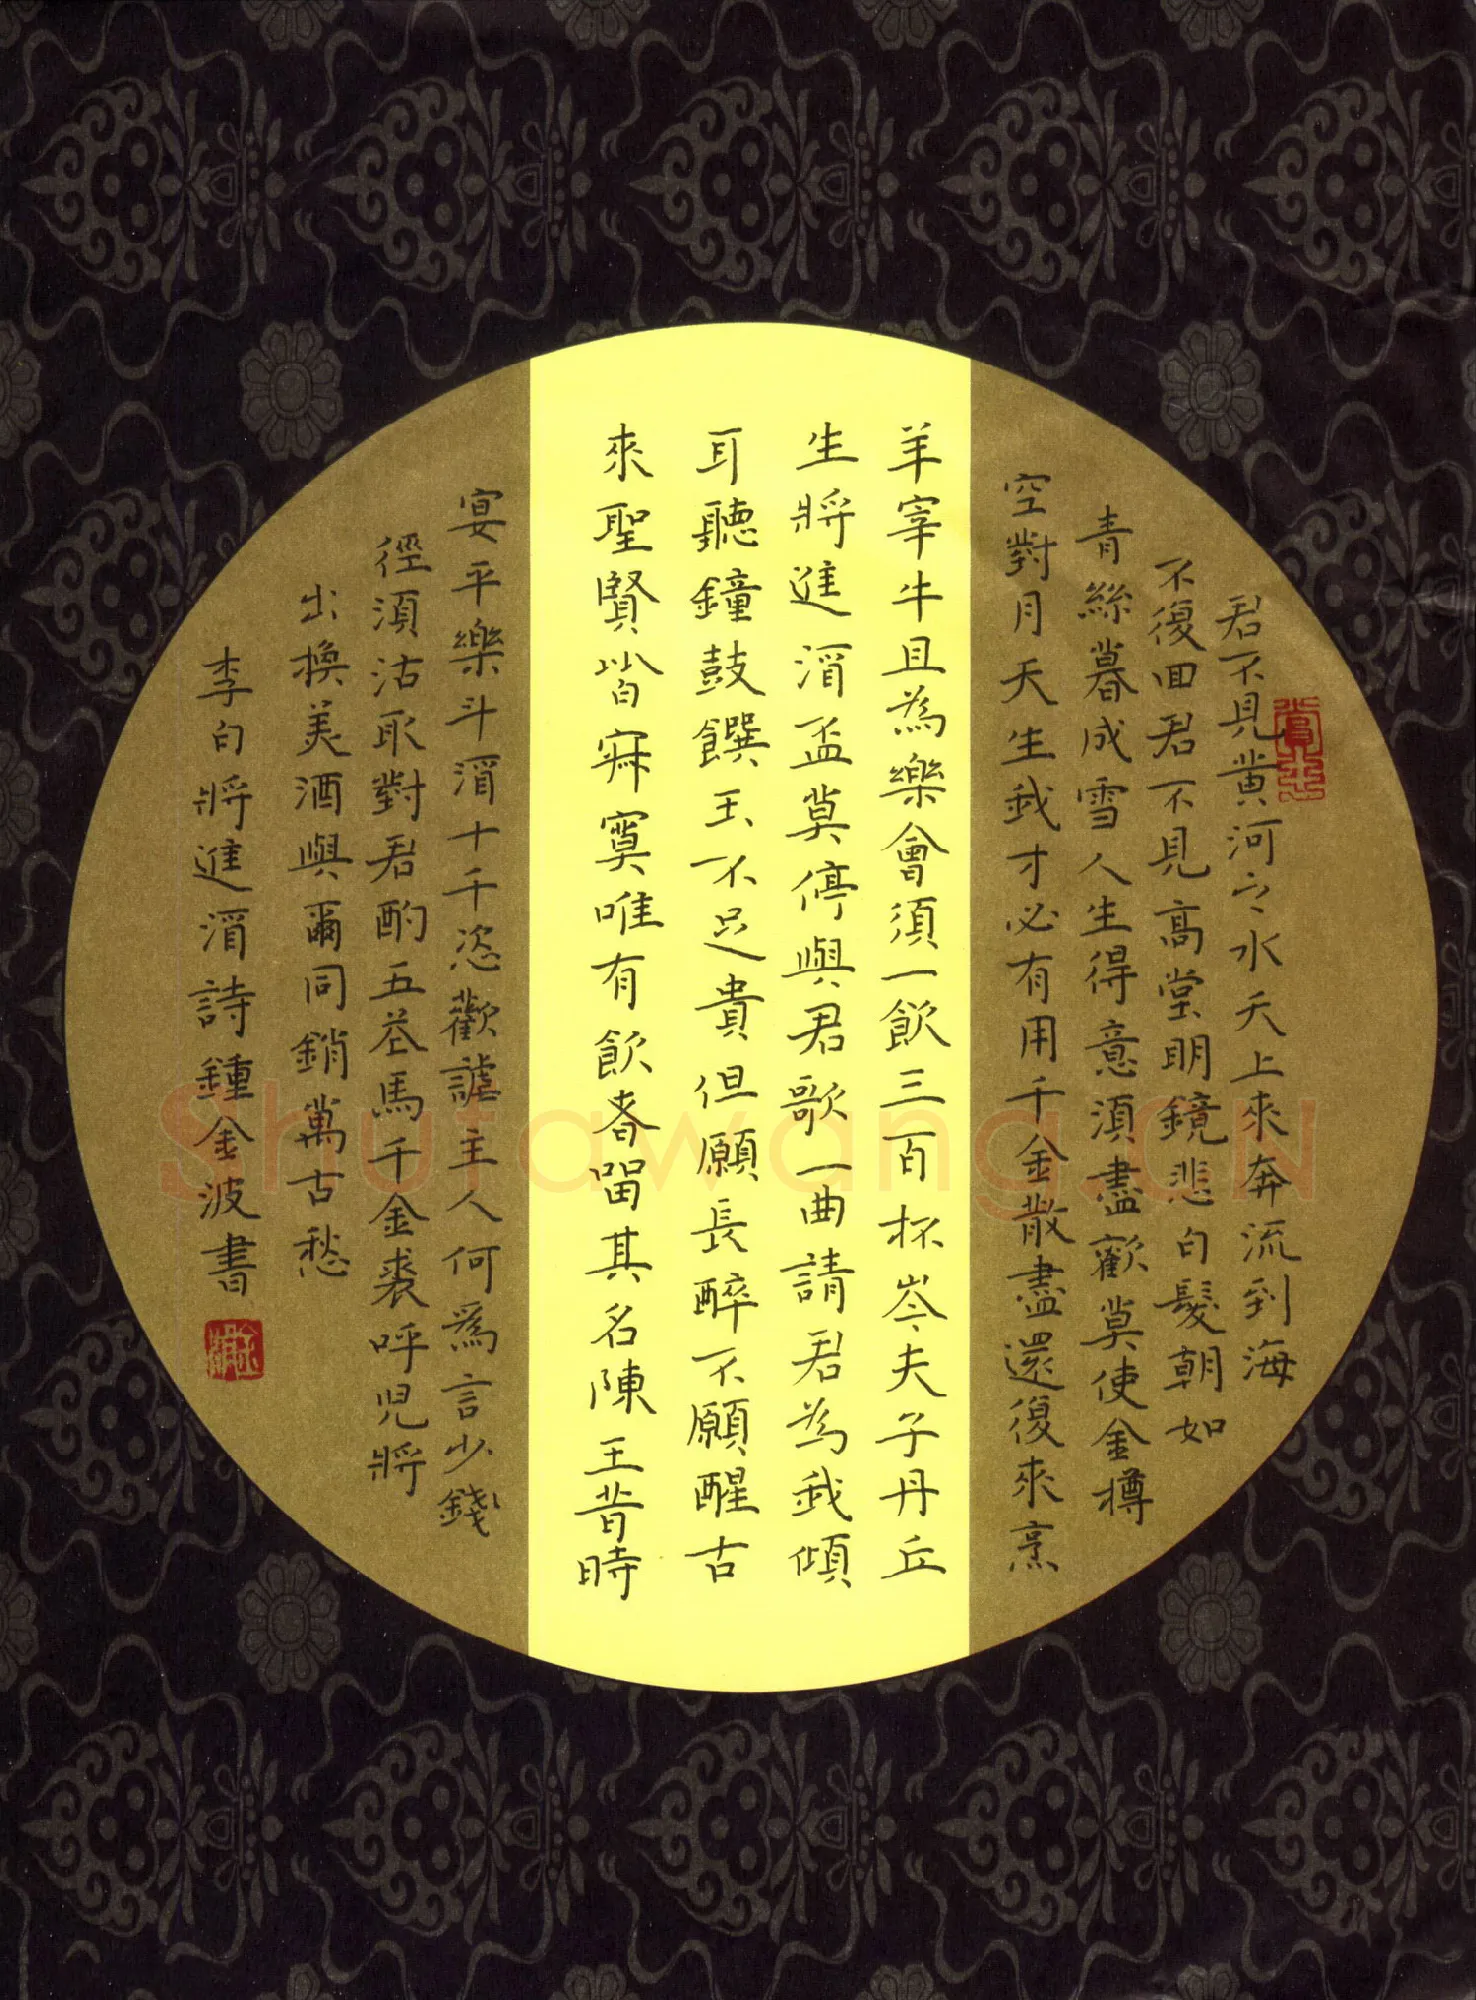 君不見黄河之水天上來奔流到海
不復回君不見高堂明鏡悲白髮朝如
青絲暮成雪人生得意須盡歡莫使金樽
空對月天生我才必有用千金散盡還復來烹
羊宰牛且為樂會須一飲三百杯岑夫子丹丘
生將進酒盃莫停與君歌一曲請君為我傾
耳聽鐘鼓饌玉不足貴但願長醉不願醒古
來聖賢皆寂寞唯有飲者留其名陳王昔時
宴平樂斗酒十千恣歡謔主人何為言少錢
徑須沽取對君酌五花馬千金裘呼児將
出換美酒與爾同銷萬古愁
李白將進酒詩鍾金波書
Shufawang.CN